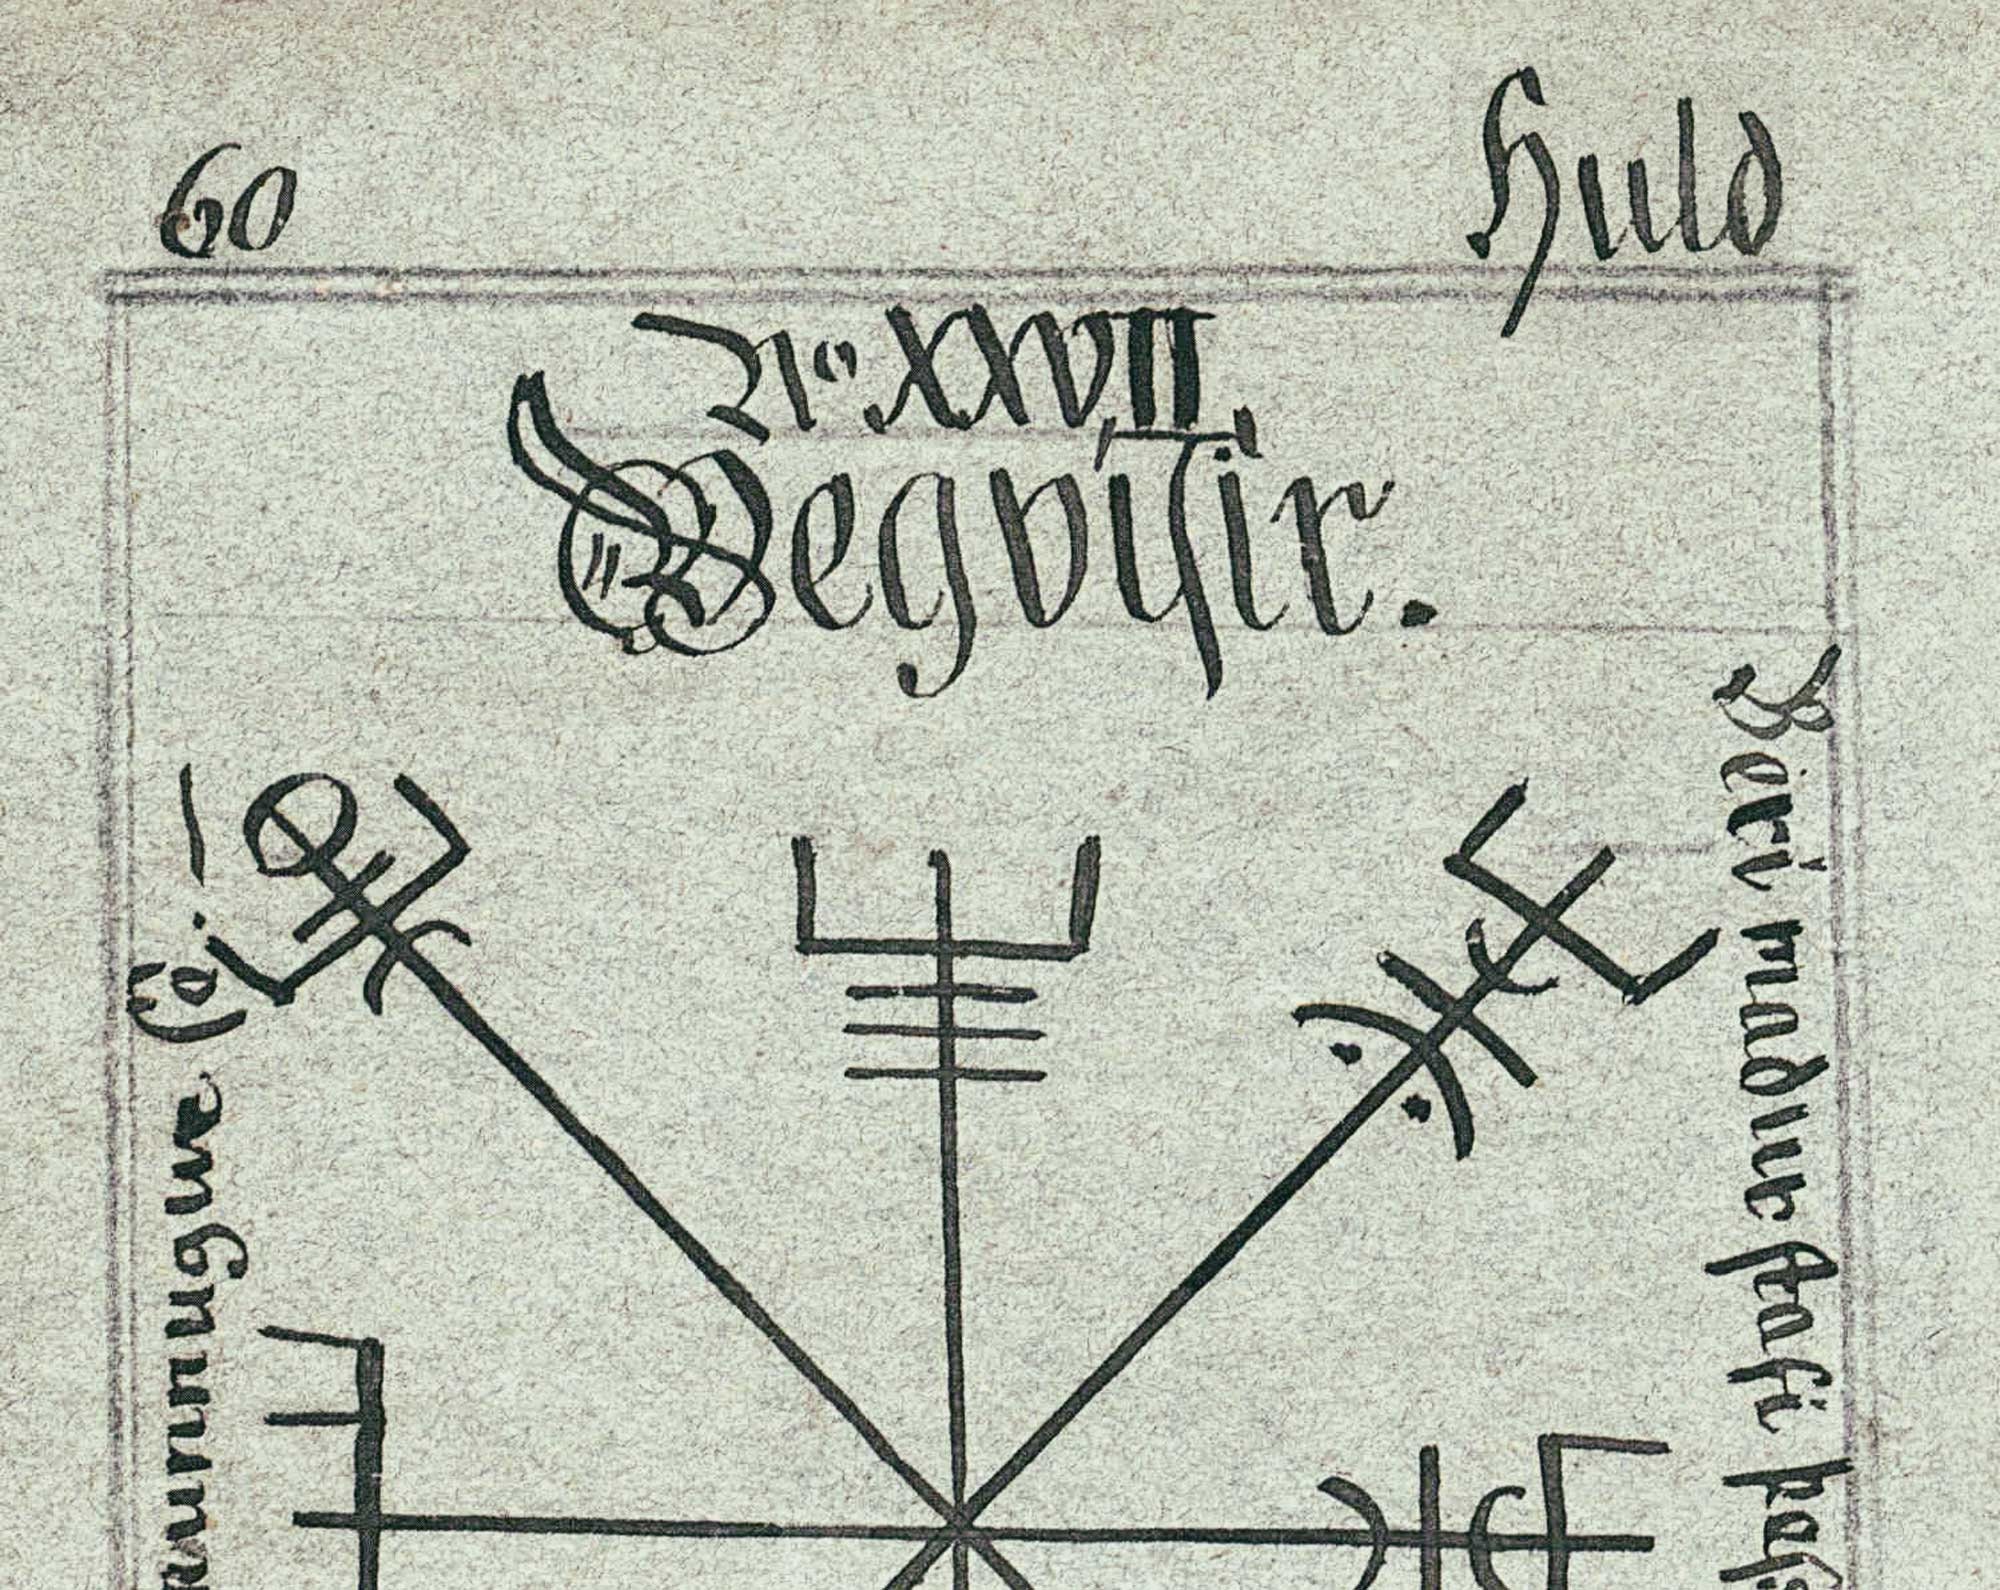 60
Huld
No XXVII.
Vegvisir.
Beri madur stafi þess
ramnugur sé. —